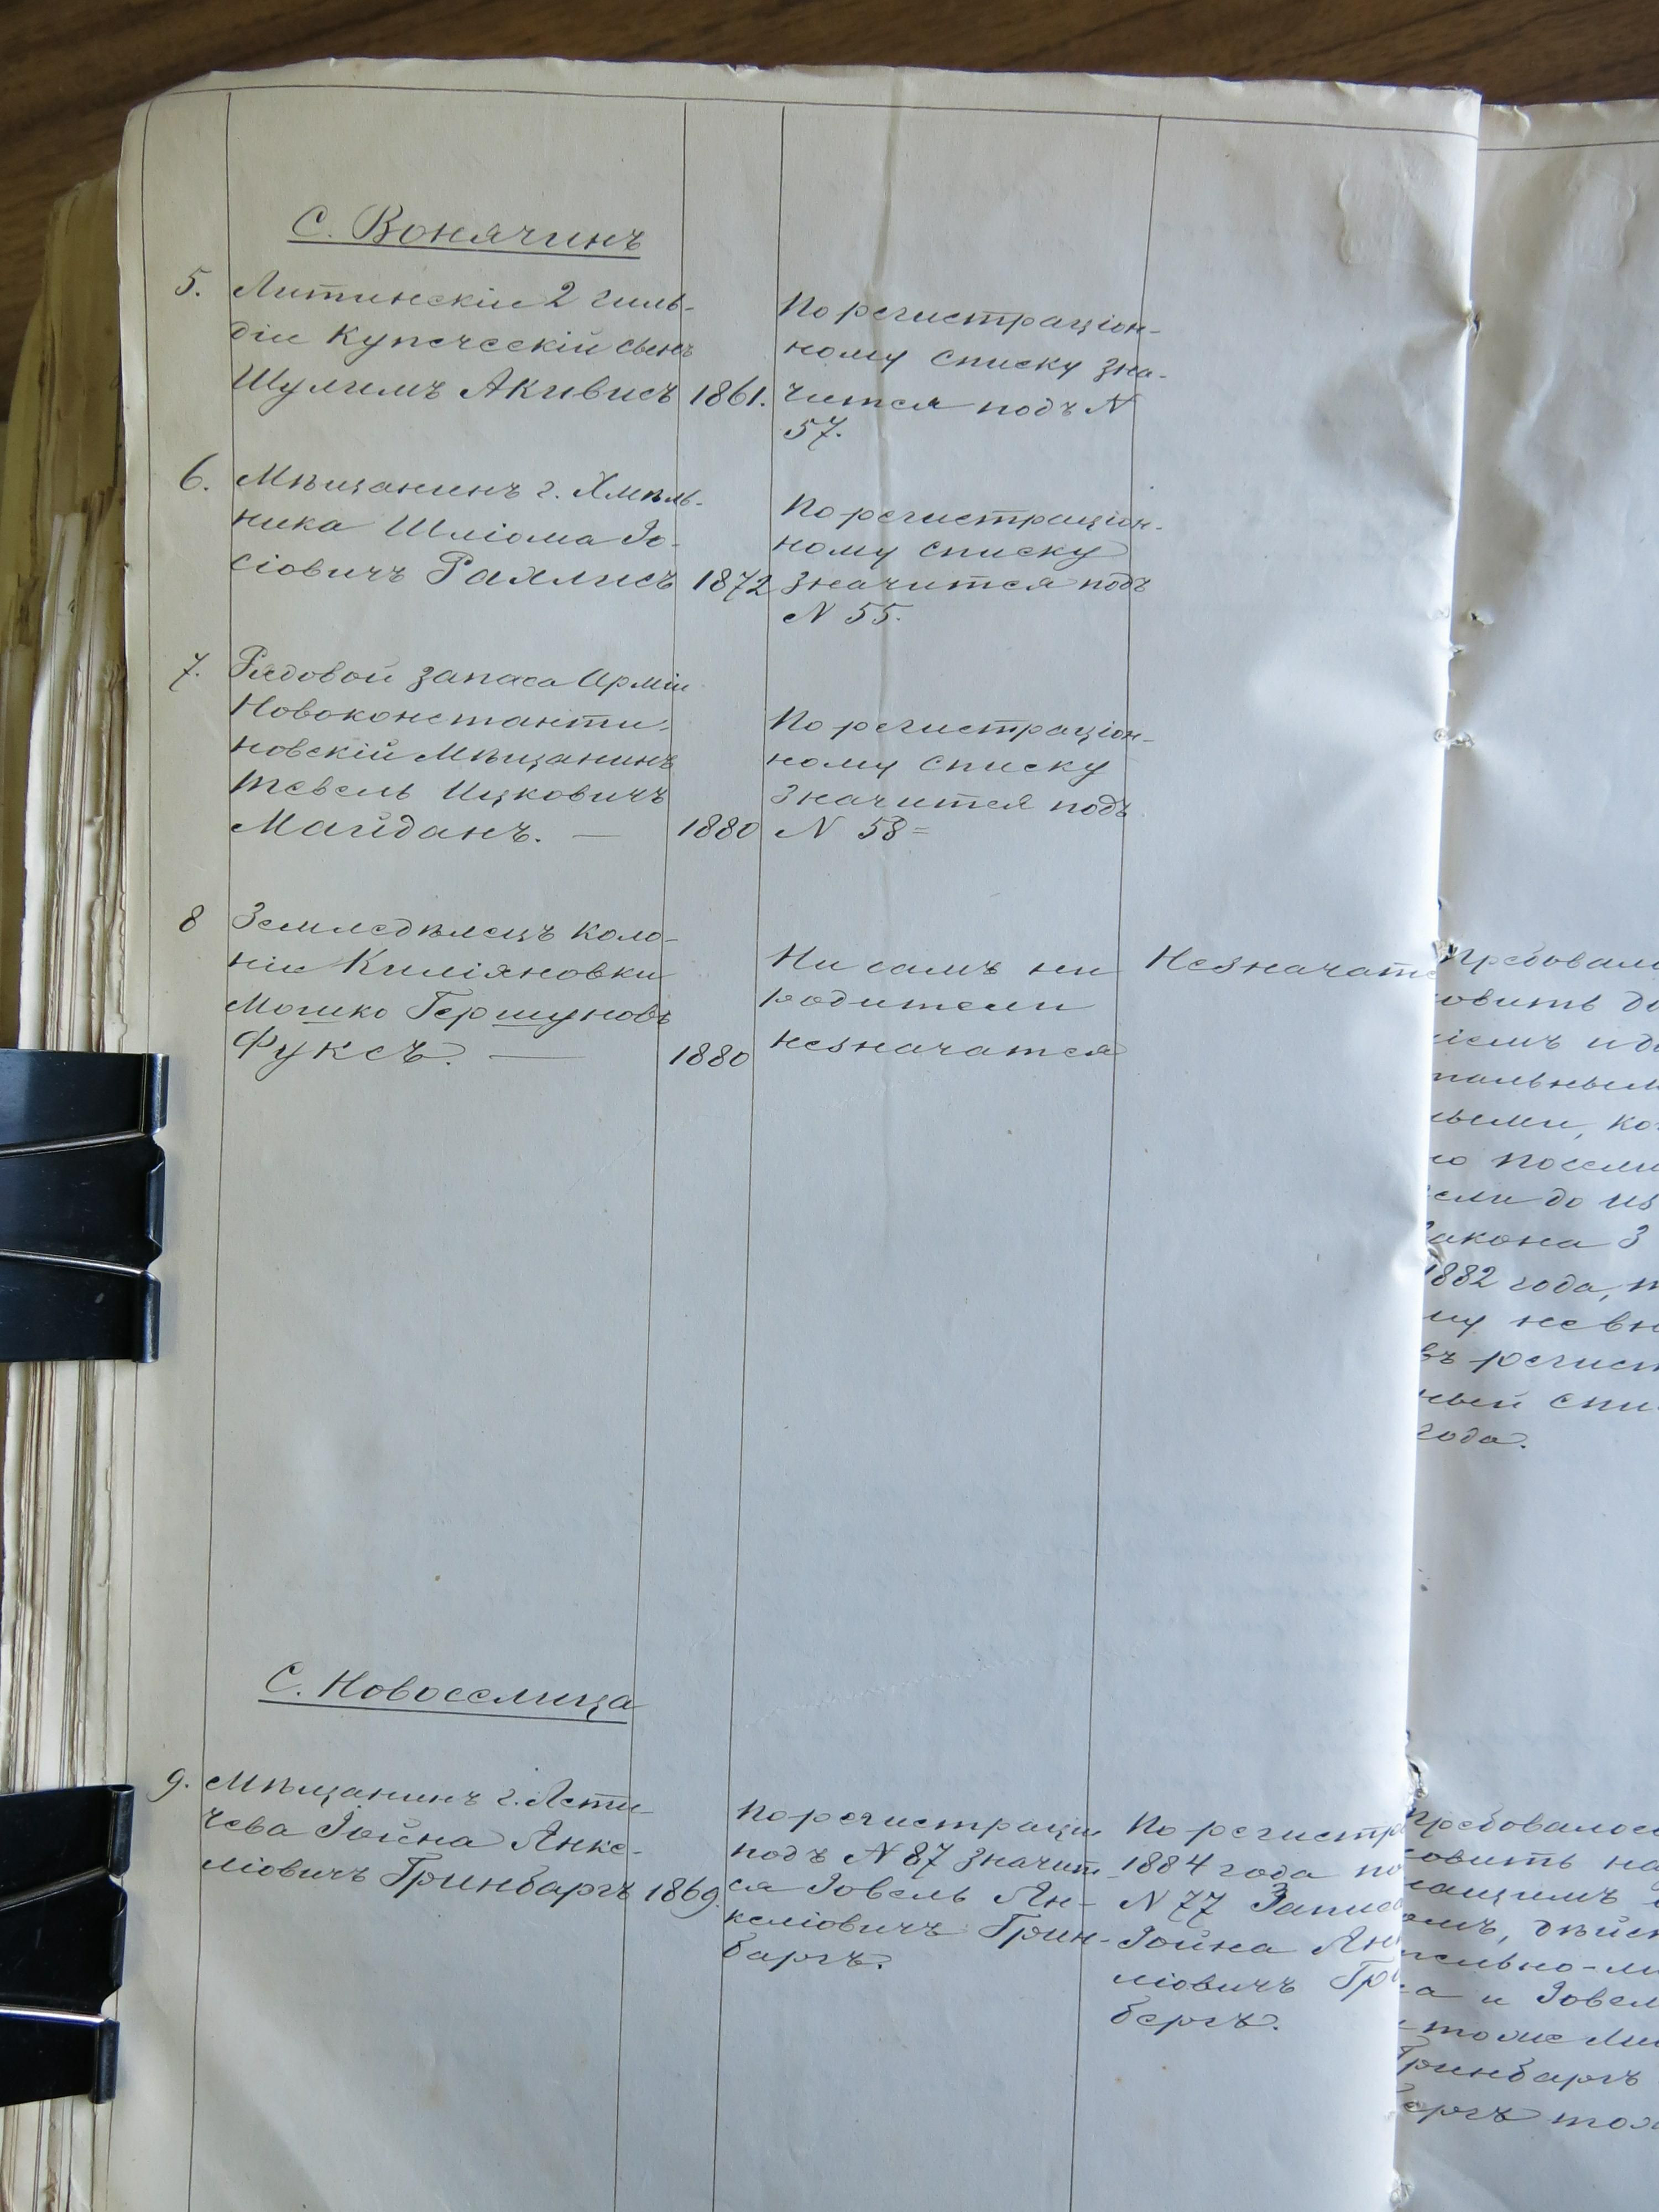 С. Вонячинъ
5. Литинскій 2 гиль-
діи Купеческій сынъ
Шулимъ Акивисъ 1861.
По регистраціон-
ному списку зна-
чится подъ N
57.
6. Мѣщанинъ г. Хмѣль-
ника Шліома Іо-
сіовичъ Рахлисъ 1872
По регистраціон-
ному списку
значится подъ
N 55.
7. Рядовой запаса Арміи
Новоконстанти-
новскій Мѣщанинъ
Тевель Ицковичъ
Майданъ. — 1880
По регистраціон-
ному списку
значится подъ
N 58=
8 Земледѣлецъ коло-
ніи Киліяновки
Мошко Гершуновъ
Фуксъ. — 1880
Ни самъ ни
родители
незначатся
Незначатс
Требовал
овить до
іемъ и до
тальным
ными, ко
го посели
сели до из
Закона 3
1882 года, п
му не вн
въ регист
ный спи
года.
С. Новоселица
9. Мѣщанинъ г. Лети-
чева Іойна Янке-
ліовичъ Гринбаргъ 1869.
По регистраціи
подъ N 87 значит-
ся Іовель Ян-
келіовичъ Грин-
баргъ.
По регистр
1884 года по
N 77 Записа
Іойна Ян
ліовичъ Гр
бергъ.
Требовалос
овить на
ащимъ
омъ, дѣйс
тельно-ли
а и Іовел
тоже ли
Гринбаргъ
бергъ тож